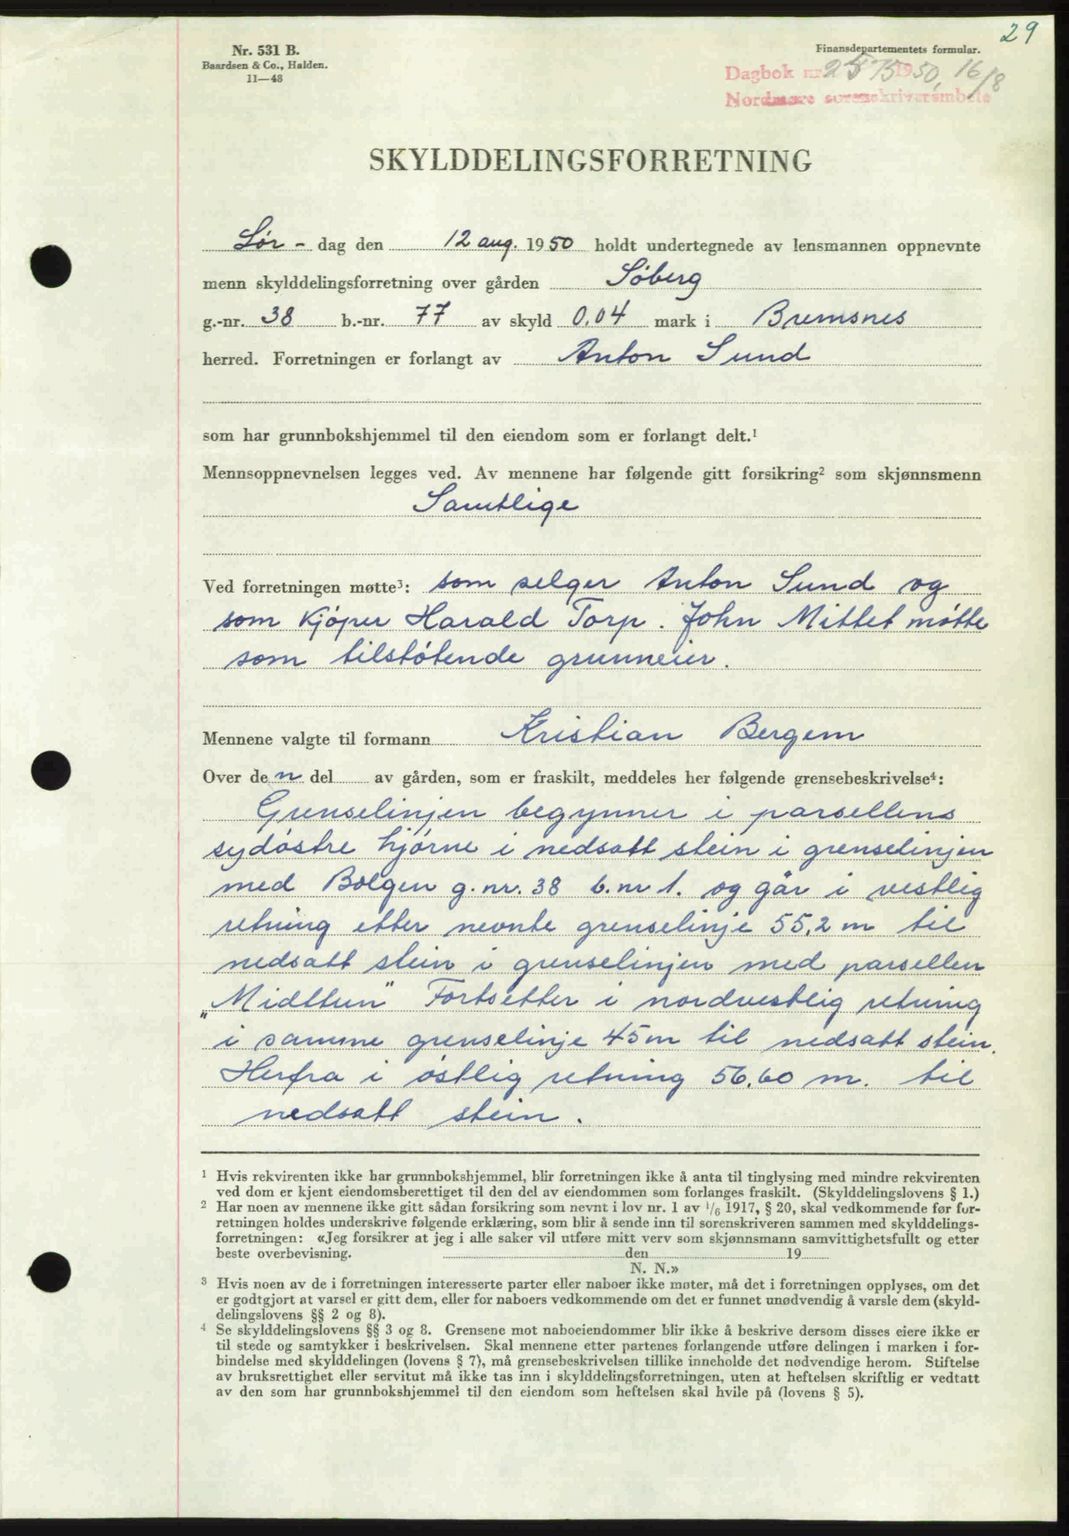 29
Nr. 531 B.
Baardsen & Co., Halden.
11—48
Finansdepartementets formular.
Dagbok nr. 2575 1950, 16/8
Nordmøre sorenskriverembete
SKYLDDELINGSFORRETNING
Lør - dag den 12 aug. 1950 holdt undertegnede av lensmannen oppnevnte
menn skylddelingsforretning over gården Söberg
g.-nr. 38 b.-nr. 77 av skyld 0,04 mark i Bremsnes
herred. Forretningen er forlangt av Anton Sund
som har grunnbokshjemmel til den eiendom som er forlangt delt.¹
Mennsoppnevnelsen legges ved. Av mennene har følgende gitt forsikring² som skjønnsmenn
Samtlige
Ved forretningen møtte³: som selger Anton Sund og
som kjöper Harald Torp. John Mittet mötte
som tilstötende grunneier.
Mennene valgte til formann Kristian Bergem
Over den del av gården, som er fraskilt, meddeles her følgende grensebeskrivelse⁴:
Grenselinjen begynner i parsellens
sydöstre hjörne i nedsatt stein i grenselinjen
med Bolgen g.nr. 38 b.nr 1. og går i vestlig
retning etter nevnte grenselinje 55,2 m til
nedsatt stein i grenselinjen med parsellen
„Midttun" Fortsetter i nordvestlig retning
i samme grenselinje 45 m til nedsatt stein.
Herfra i östlig retning 56,60 m. til
nedsatt stein.
¹ Hvis rekvirenten ikke har grunnbokshjemmel, blir forretningen ikke å anta til tinglysing med mindre rekvirenten
ved dom er kjent eiendomsberettiget til den del av eiendommen som forlanges fraskilt. (Skylddelingslovens § 1.)
² Har noen av mennene ikke gitt sådan forsikring som nevnt i lov nr. 1 av 1/6 1917, § 20, skal vedkommende før for-
retningen holdes underskrive følgende erklæring, som blir å sende inn til sorenskriveren sammen med skylddelings-
forretningen: «Jeg forsikrer at jeg i alle saker vil utføre mitt verv som skjønnsmann samvittighetsfullt og etter
beste overbevisning. den 19
N. N.»
³ Hvis noen av de i forretningen interesserte parter eller naboer ikke møter, må det i forretningen opplyses, om det
er godtgjort at varsel er gitt dem, eller for naboers vedkommende om det er funnet unødvendig å varsle dem (skyld-
delingslovens §§ 2 og 8).
⁴ Se skylddelingslovens §§ 3 og 8. Grensene mot naboeiendommer blir ikke å beskrive dersom disses eiere ikke er
til stede og samtykker i beskrivelsen. Skal mennene etter partenes forlangende utføre delingen i marken i for-
bindelse med skylddelingen (lovens § 7), må grensebeskrivelsen tillike inneholde det nødvendige herom. Stiftelse
av bruksrettighet eller servitut må ikke tas inn i skylddelingsforretningen, uten at heftelsen skriftlig er vedtatt
av den som har grunnbokshjemmel til den eiendom som heftelsen skal hvile på (lovens § 5).